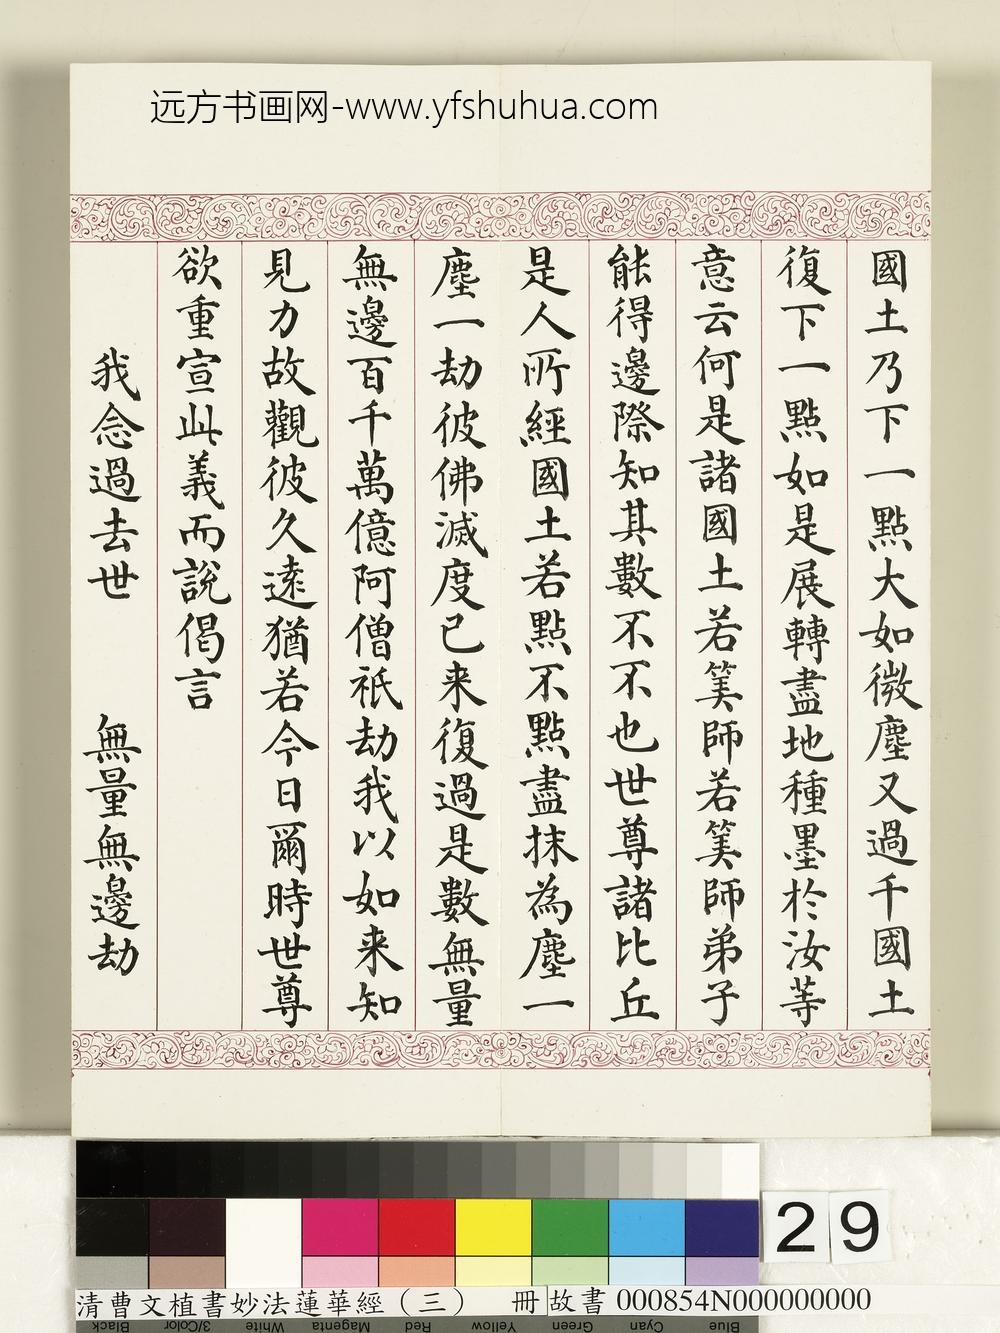 远方书画网-www.yfshuhua.com
國土乃下一點大如微塵又過千國土
復下一點如是展轉盡地種墨於汝等
意云何是諸國土若筭師若筭師弟子
能得邊際知其數不不也世尊諸比丘
是人所經國土若點不點盡抹為塵一
塵一劫彼佛滅度已来復過是數無量
無邊百千萬億阿僧祇劫我以如来知
見力故觀彼久遠猶若今日爾時世尊
欲重宣此義而說偈言
我念過去世 無量無邊劫
29
清曹文植書妙法蓮華經（三） 冊 故書 000854N000000000
Black 3/Color White Magenta Red Yellow Green Cyan Blue